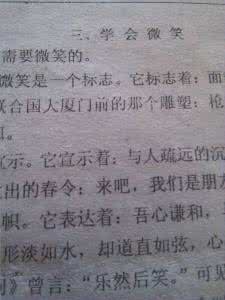 三、学会微笑
需要微笑的。
微笑是一个标志。它标志着：面
联合国大厦门前的那个雕塑：枪
宣示。它宣示着：与人疏远的沉
出的春令：来吧，我们是朋
帜。它表达着：吾心谦和，与
形淡如水，却道直如弦，心
曾言：“乐然后笑。”可见